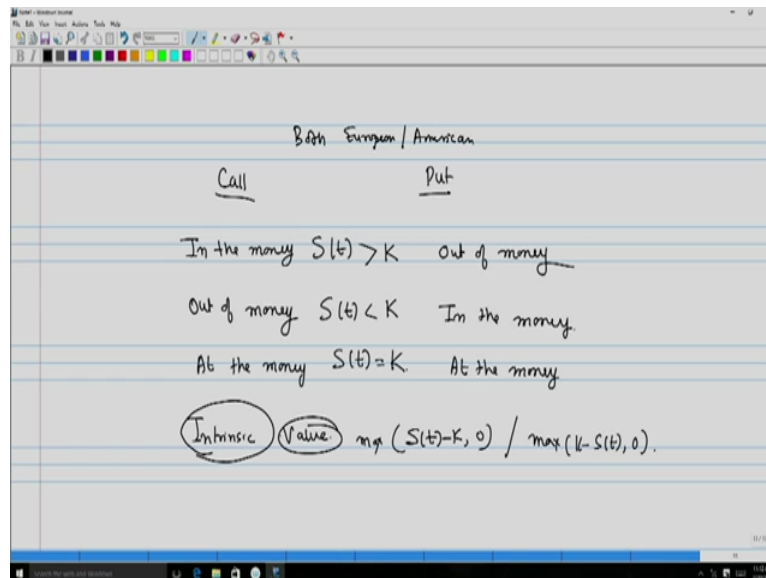 File Edit View Insert Actions Tools Help
B I
Both European / American
Call Put
In the money S(t) > K Out of money
Out of money S(t) < K In the money.
At the money S(t) = K. At the money
Intrinsic Value. max (S(t)-K, 0) / max (K-S(t), 0).
Search the web and Windows